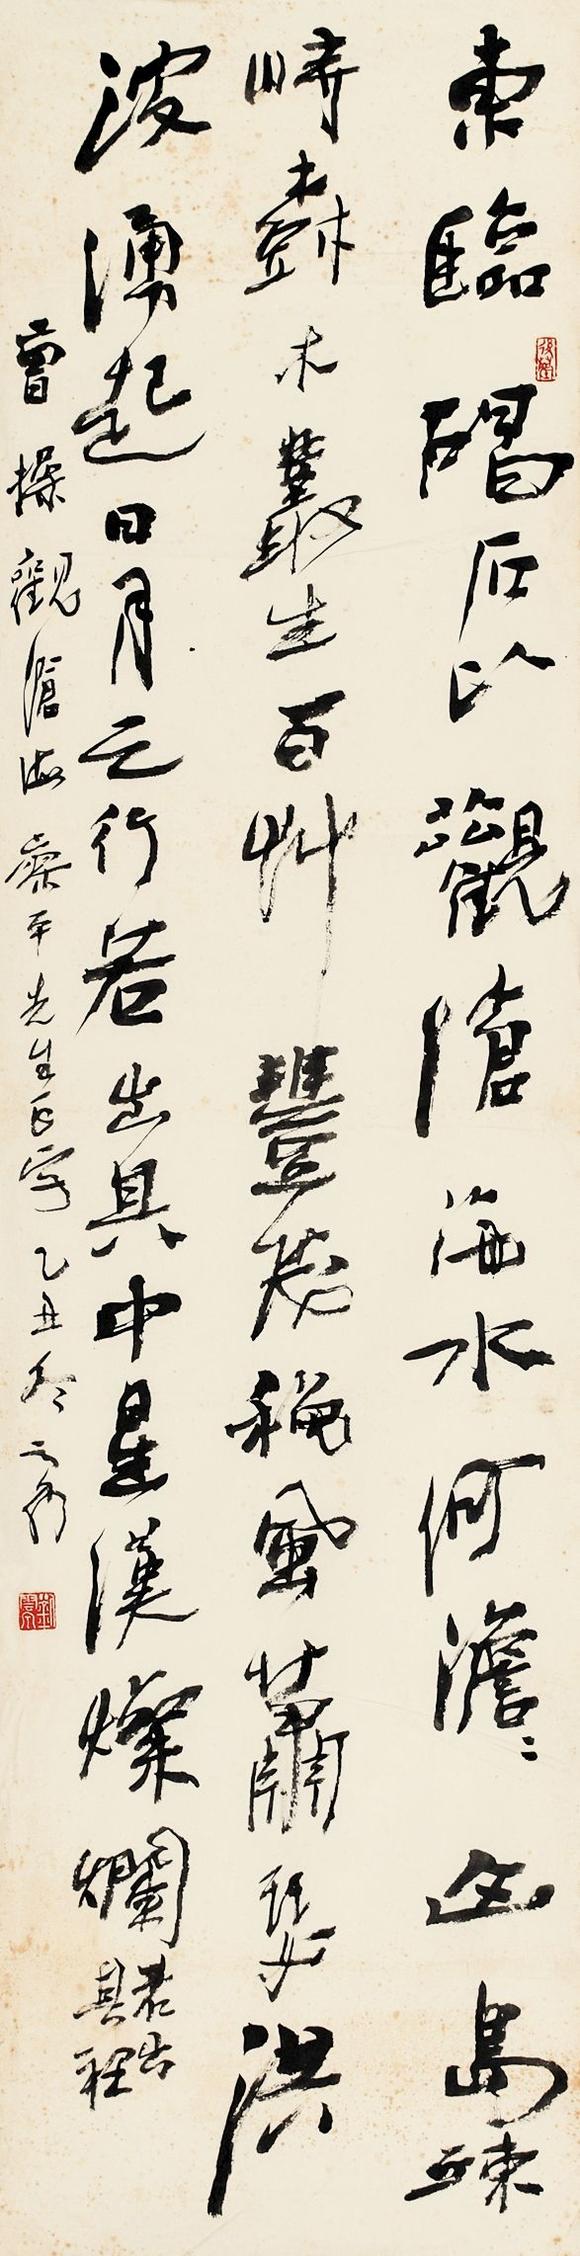 東臨碣石以觀滄海水何澹澹山島竦
峙樹木叢生百艸豐茂穐風蕭瑟洪
波湧起日月之行若出其中星漢燦爛若出其裡
曹操觀滄海 平先生正字 乙丑冬